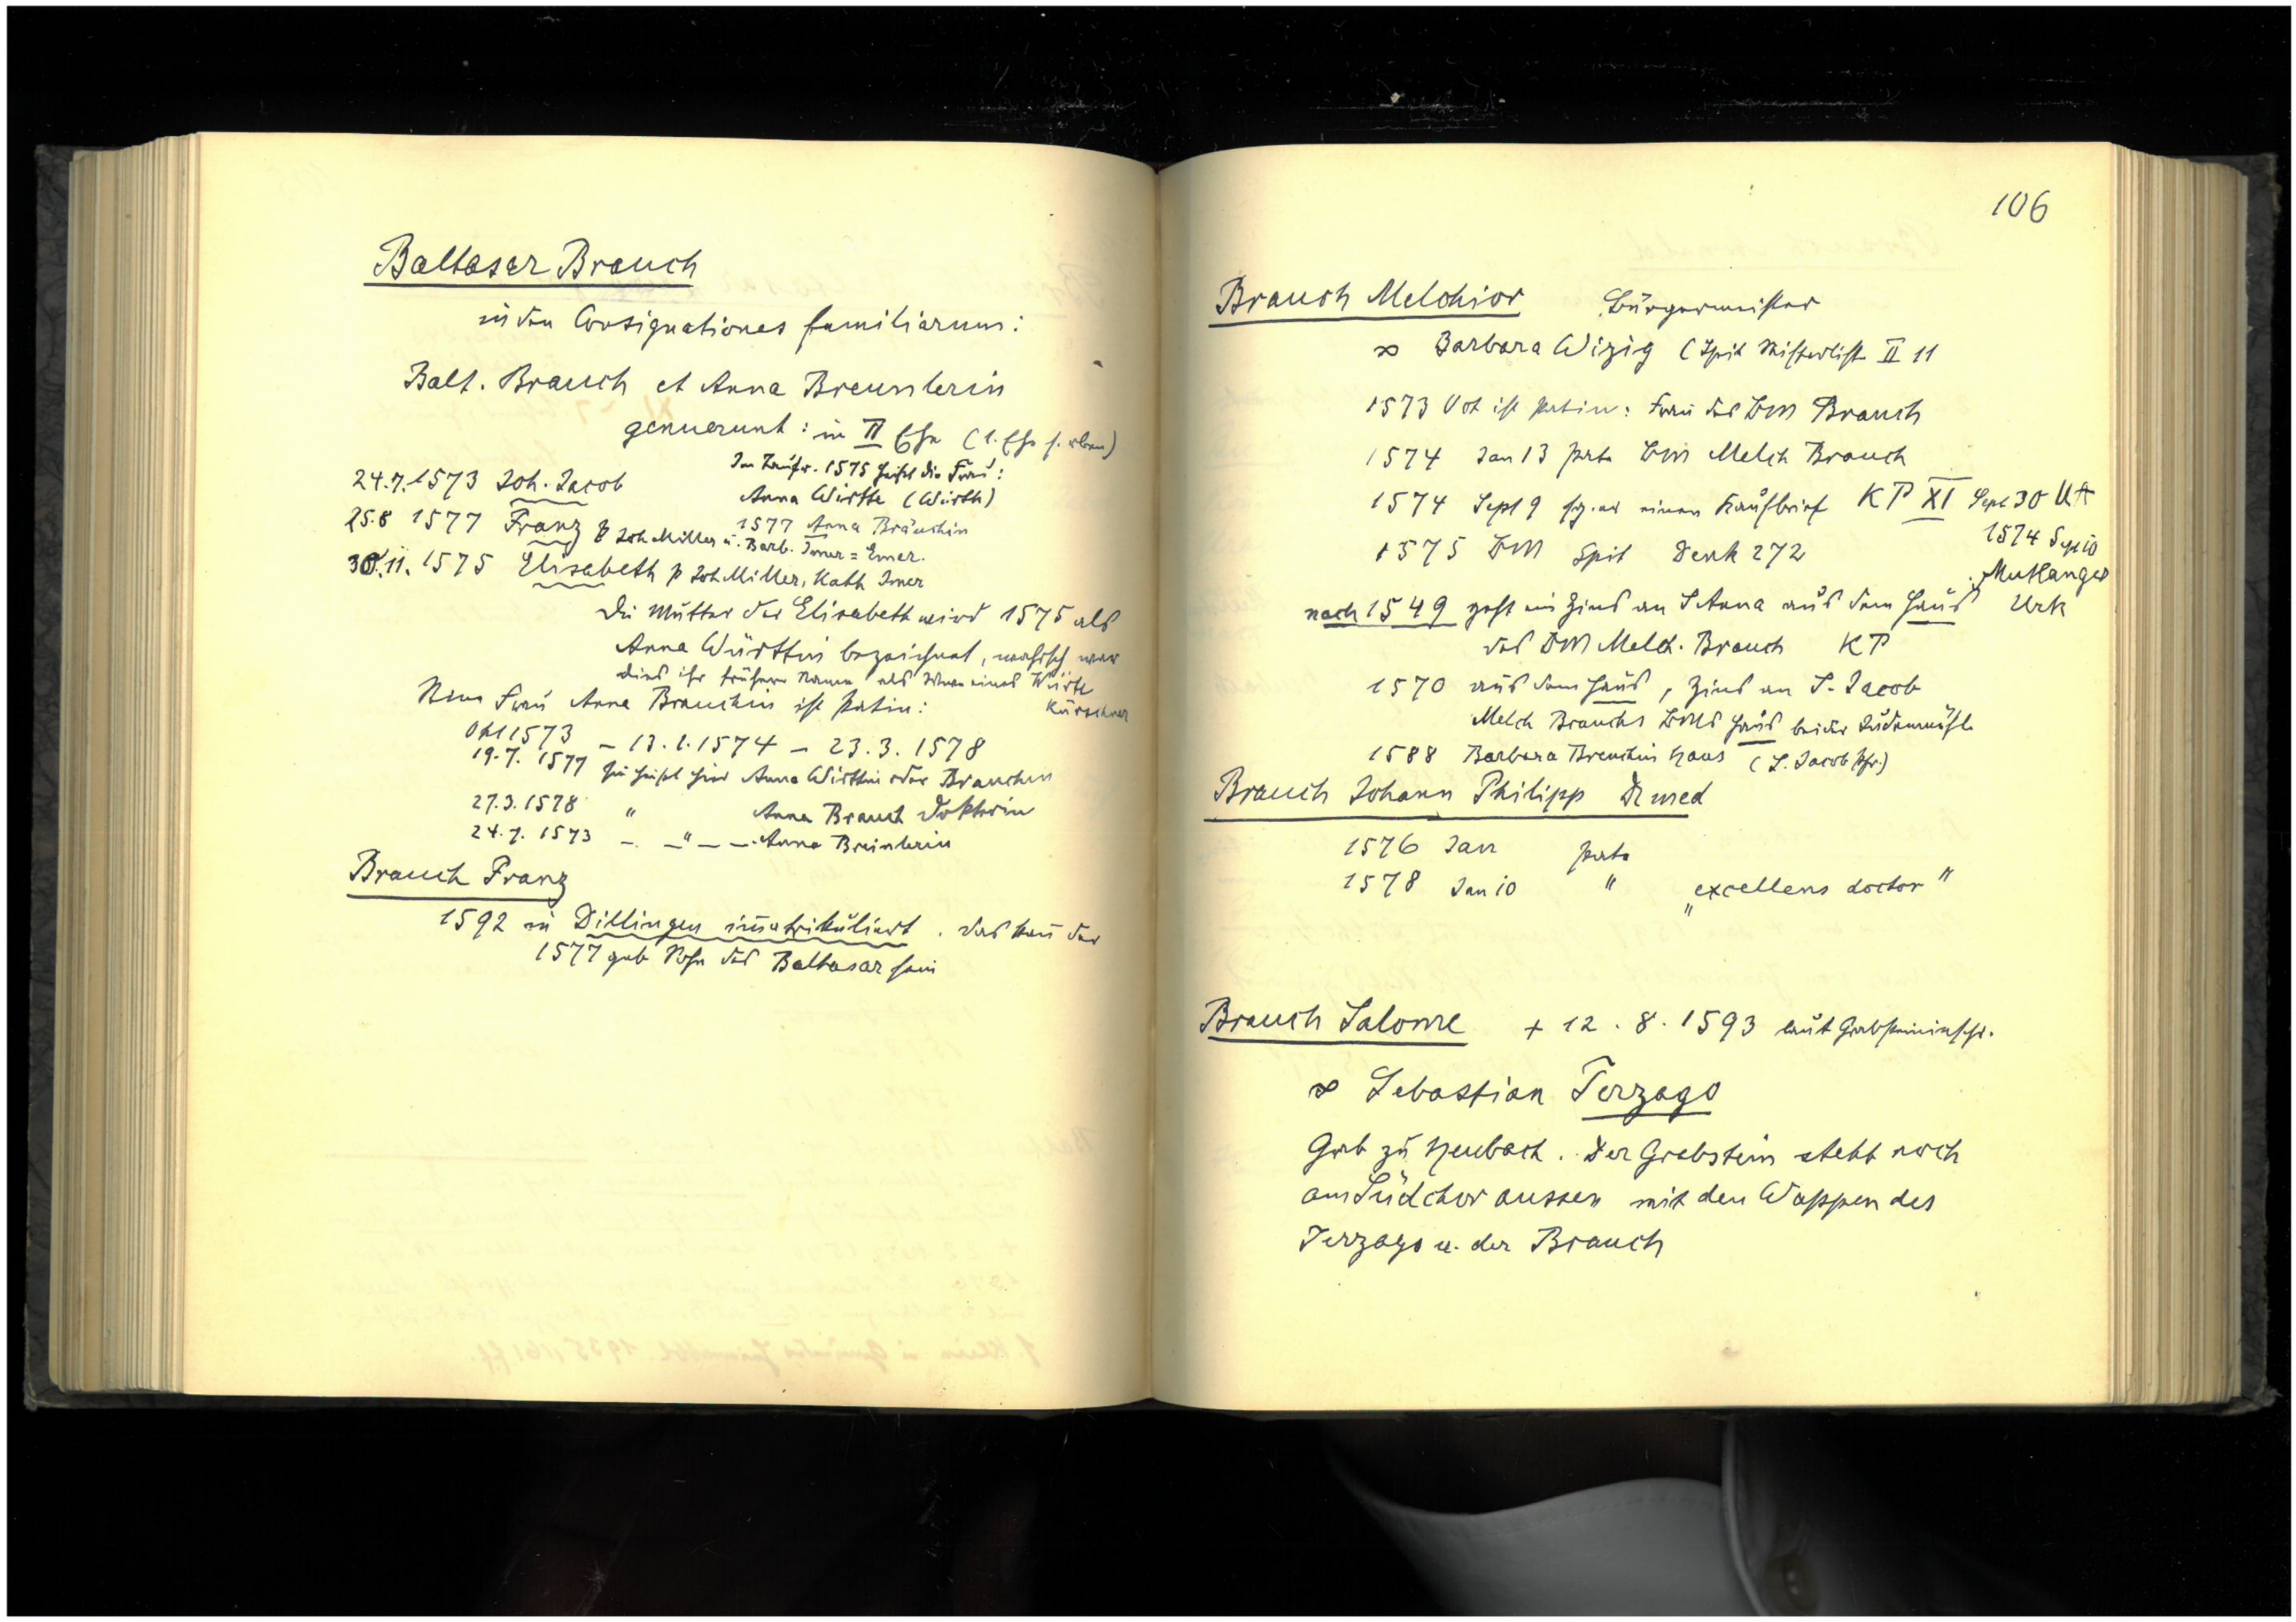 Baltasar Brauch
in den Consignationes familiarum:
Balt. Brauch et Anna Breunlerin
genuerunt: in II Ehe (1. Ehe s. oben)
Im Taufr. 1575 heisst die Frau:
24.7. 1573 Joh. Jacob
Anna Wirtte (Würth)
1577 Anna Bräuchin
25.8 1577 Franz p Joh Miller u. Barb. Imer = Emer.
30.11. 1575 Elisabeth p Joh Miller, Kath Imer
Die Mutter der Elisabeth wird 1575 als
Anna Württin bezeichnet, wahrsch war
dies ihr früherer Name als Witwe eines Würte
Kürschner
Frau Anna Brauchin ist Patin:
Okt 1573 – 13.1.1574 – 23.3.1578
19.7. 1577 sie heisst hier Anna Wirttin oder Brauchen
27.3.1578 " Anna Brauch Doktorin
24.7. 1573 – . – " – – . Anna Breinlerin
Brauch Franz
1592 in Dillingen immatrikuliert. das kann der
1577 geb Sohn des Baltasar sein
106
Brauch Melchior Bürgermeister
∞ Barbara Wizig (Spit Stifterliste II 11
1573 Oct ist Patin: Frau des BM Brauch
1574 Jan 13 Pate BM Melch Brauch
1574 Sept 9 sieg. er einen Kaufbrief KP XI Sept 30 UA
1574 Sep 10
1575 BM Spit Denk 272
Mutlanger
nach 1549 geht ein Zins an S Anna aus dem Haus Urk
des BM Melch. Brauch KP
1570 aus dem Haus, Zins an S. Jacob
Melch Brauchs BMs Haus bei der Judenmühle
1588 Barbara Breuchin Haus (S. Jacob Pfr.)
Brauch Johann Philipp Dr med
1576 Jan Pate
1578 Jan 10 " „excellens doctor"
Brauch Salome + 12.8.1593 laut Grabsteininschr.
∞ Sebastian Terzago
Grab zu Heubach. Der Grabstein steht noch
am Südchor aussen mit den Wappen des
Terzago u. der Brauch